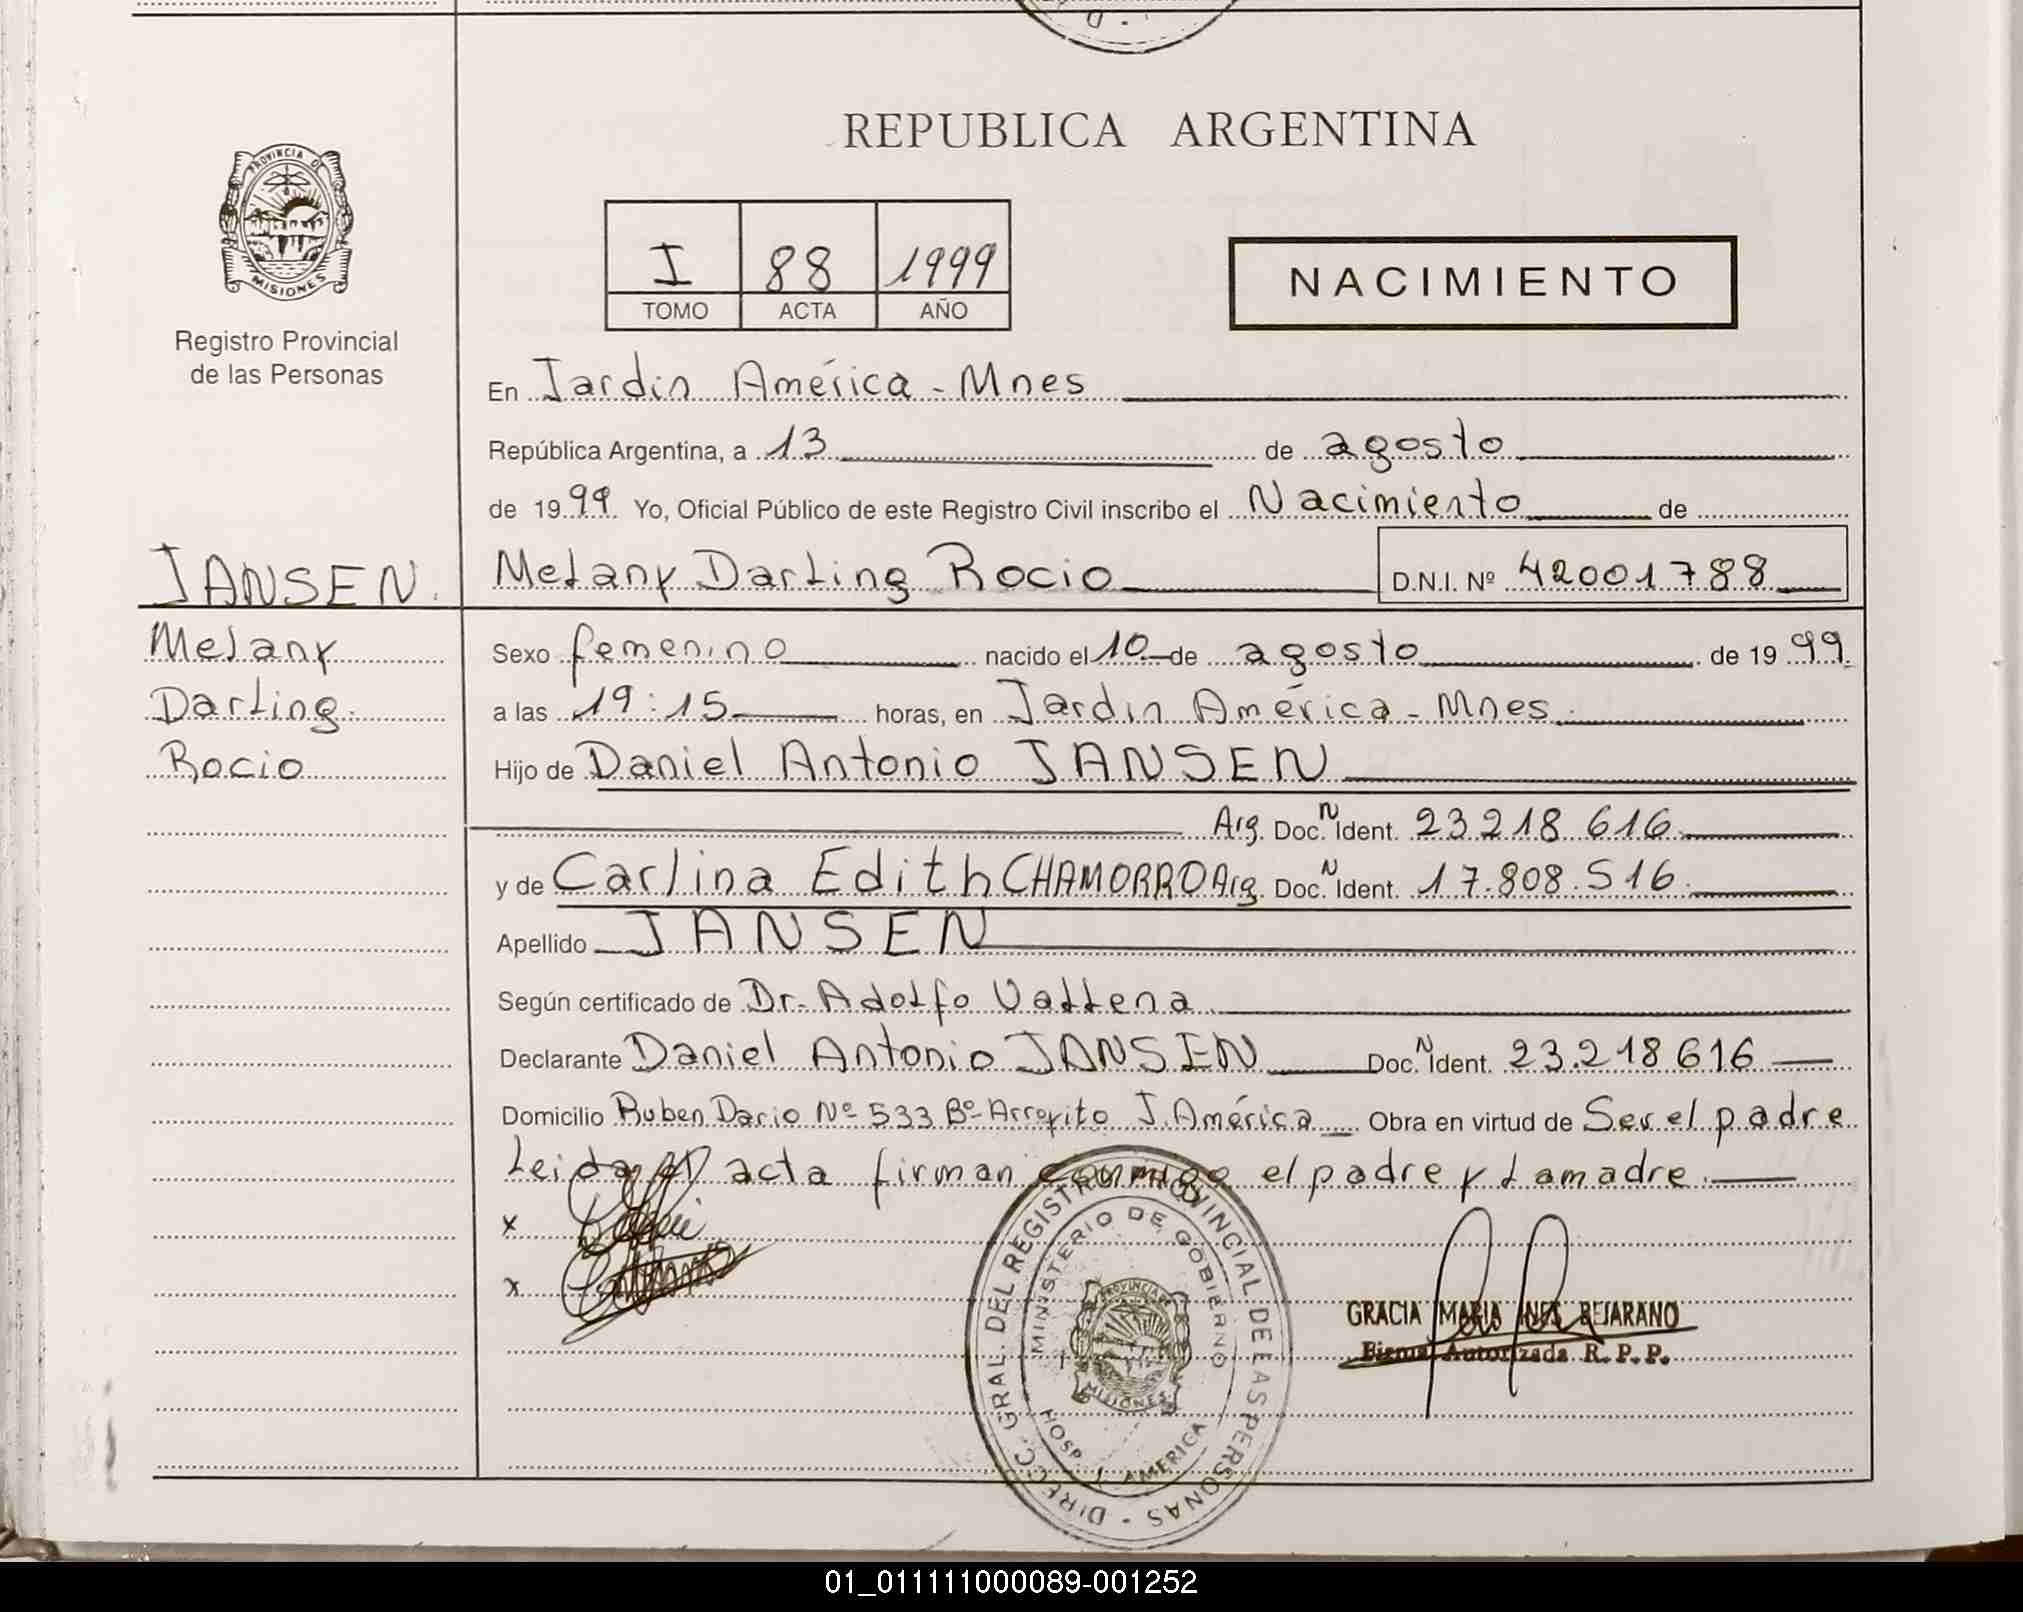 REPUBLICA ARGENTINA
PROVINCIA DE
MISIONES
Registro Provincial
de las Personas
I 88 1999
TOMO ACTA AÑO
NACIMIENTO
En Jardin América - Mnes
República Argentina, a 13 de agosto
de 1999 Yo, Oficial Público de este Registro Civil inscribo el Nacimiento de
JANSEN. Melany Darling Rocio D.N.I. Nº 42001788
Melany Sexo femenino nacido el 10 de agosto de 1999
Darling a las 19:15 horas, en Jardin América - Mnes
Rocio Hijo de Daniel Antonio JANSEN
Arg. Doc. N Ident. 23 218 616
y de Carlina Edith CHAMORRO Arg. Doc. N Ident. 17.808.516
Apellido JANSEN
Según certificado de Dr. Adolfo Vallena
Declarante Daniel Antonio JANSEN Doc. N Ident. 23.218 616
Domicilio Ruben Dario Nº 533 Bº Arroyito J. América Obra en virtud de Ser el padre
Leida el acta firman conmigo el padre y la madre.
x
x
DIRECC. GRAL. DEL REGISTRO PROVINCIAL DE LAS PERSONAS
MINISTERIO DE GOBIERNO
PROVINCIA DE
MISIONES
HOSP. J. AMERICA
GRACIA MARIA INES BEJARANO
Firma Autorizada R. P. P.
01_011111000089-001252